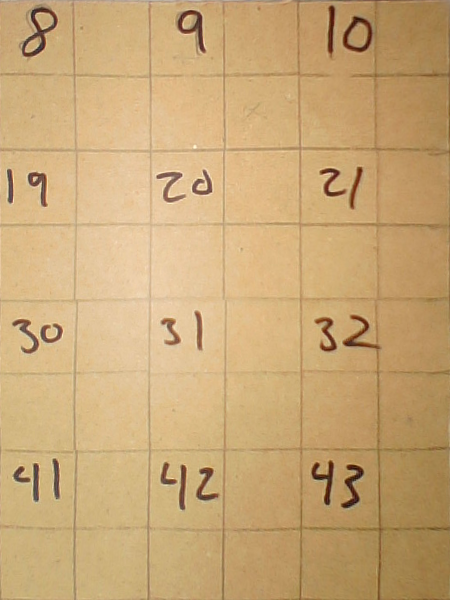 8 9 10
19 20 21
30 31 32
41 42 43